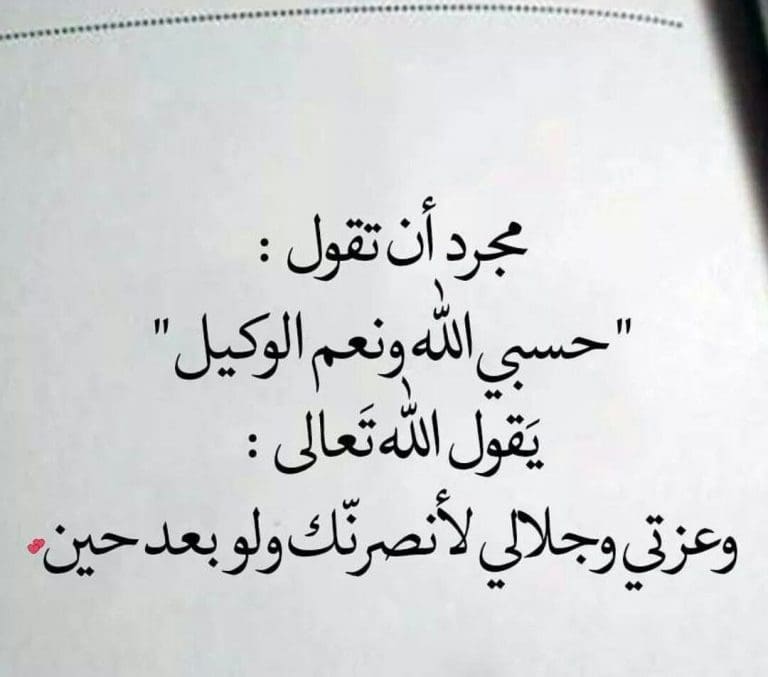 مجرد أن تقول :
"حسبي الله ونعم الوكيل"
يَقول الله تَعالى :
وعزتي وجلالي لأنصرنّك ولو بعد حين